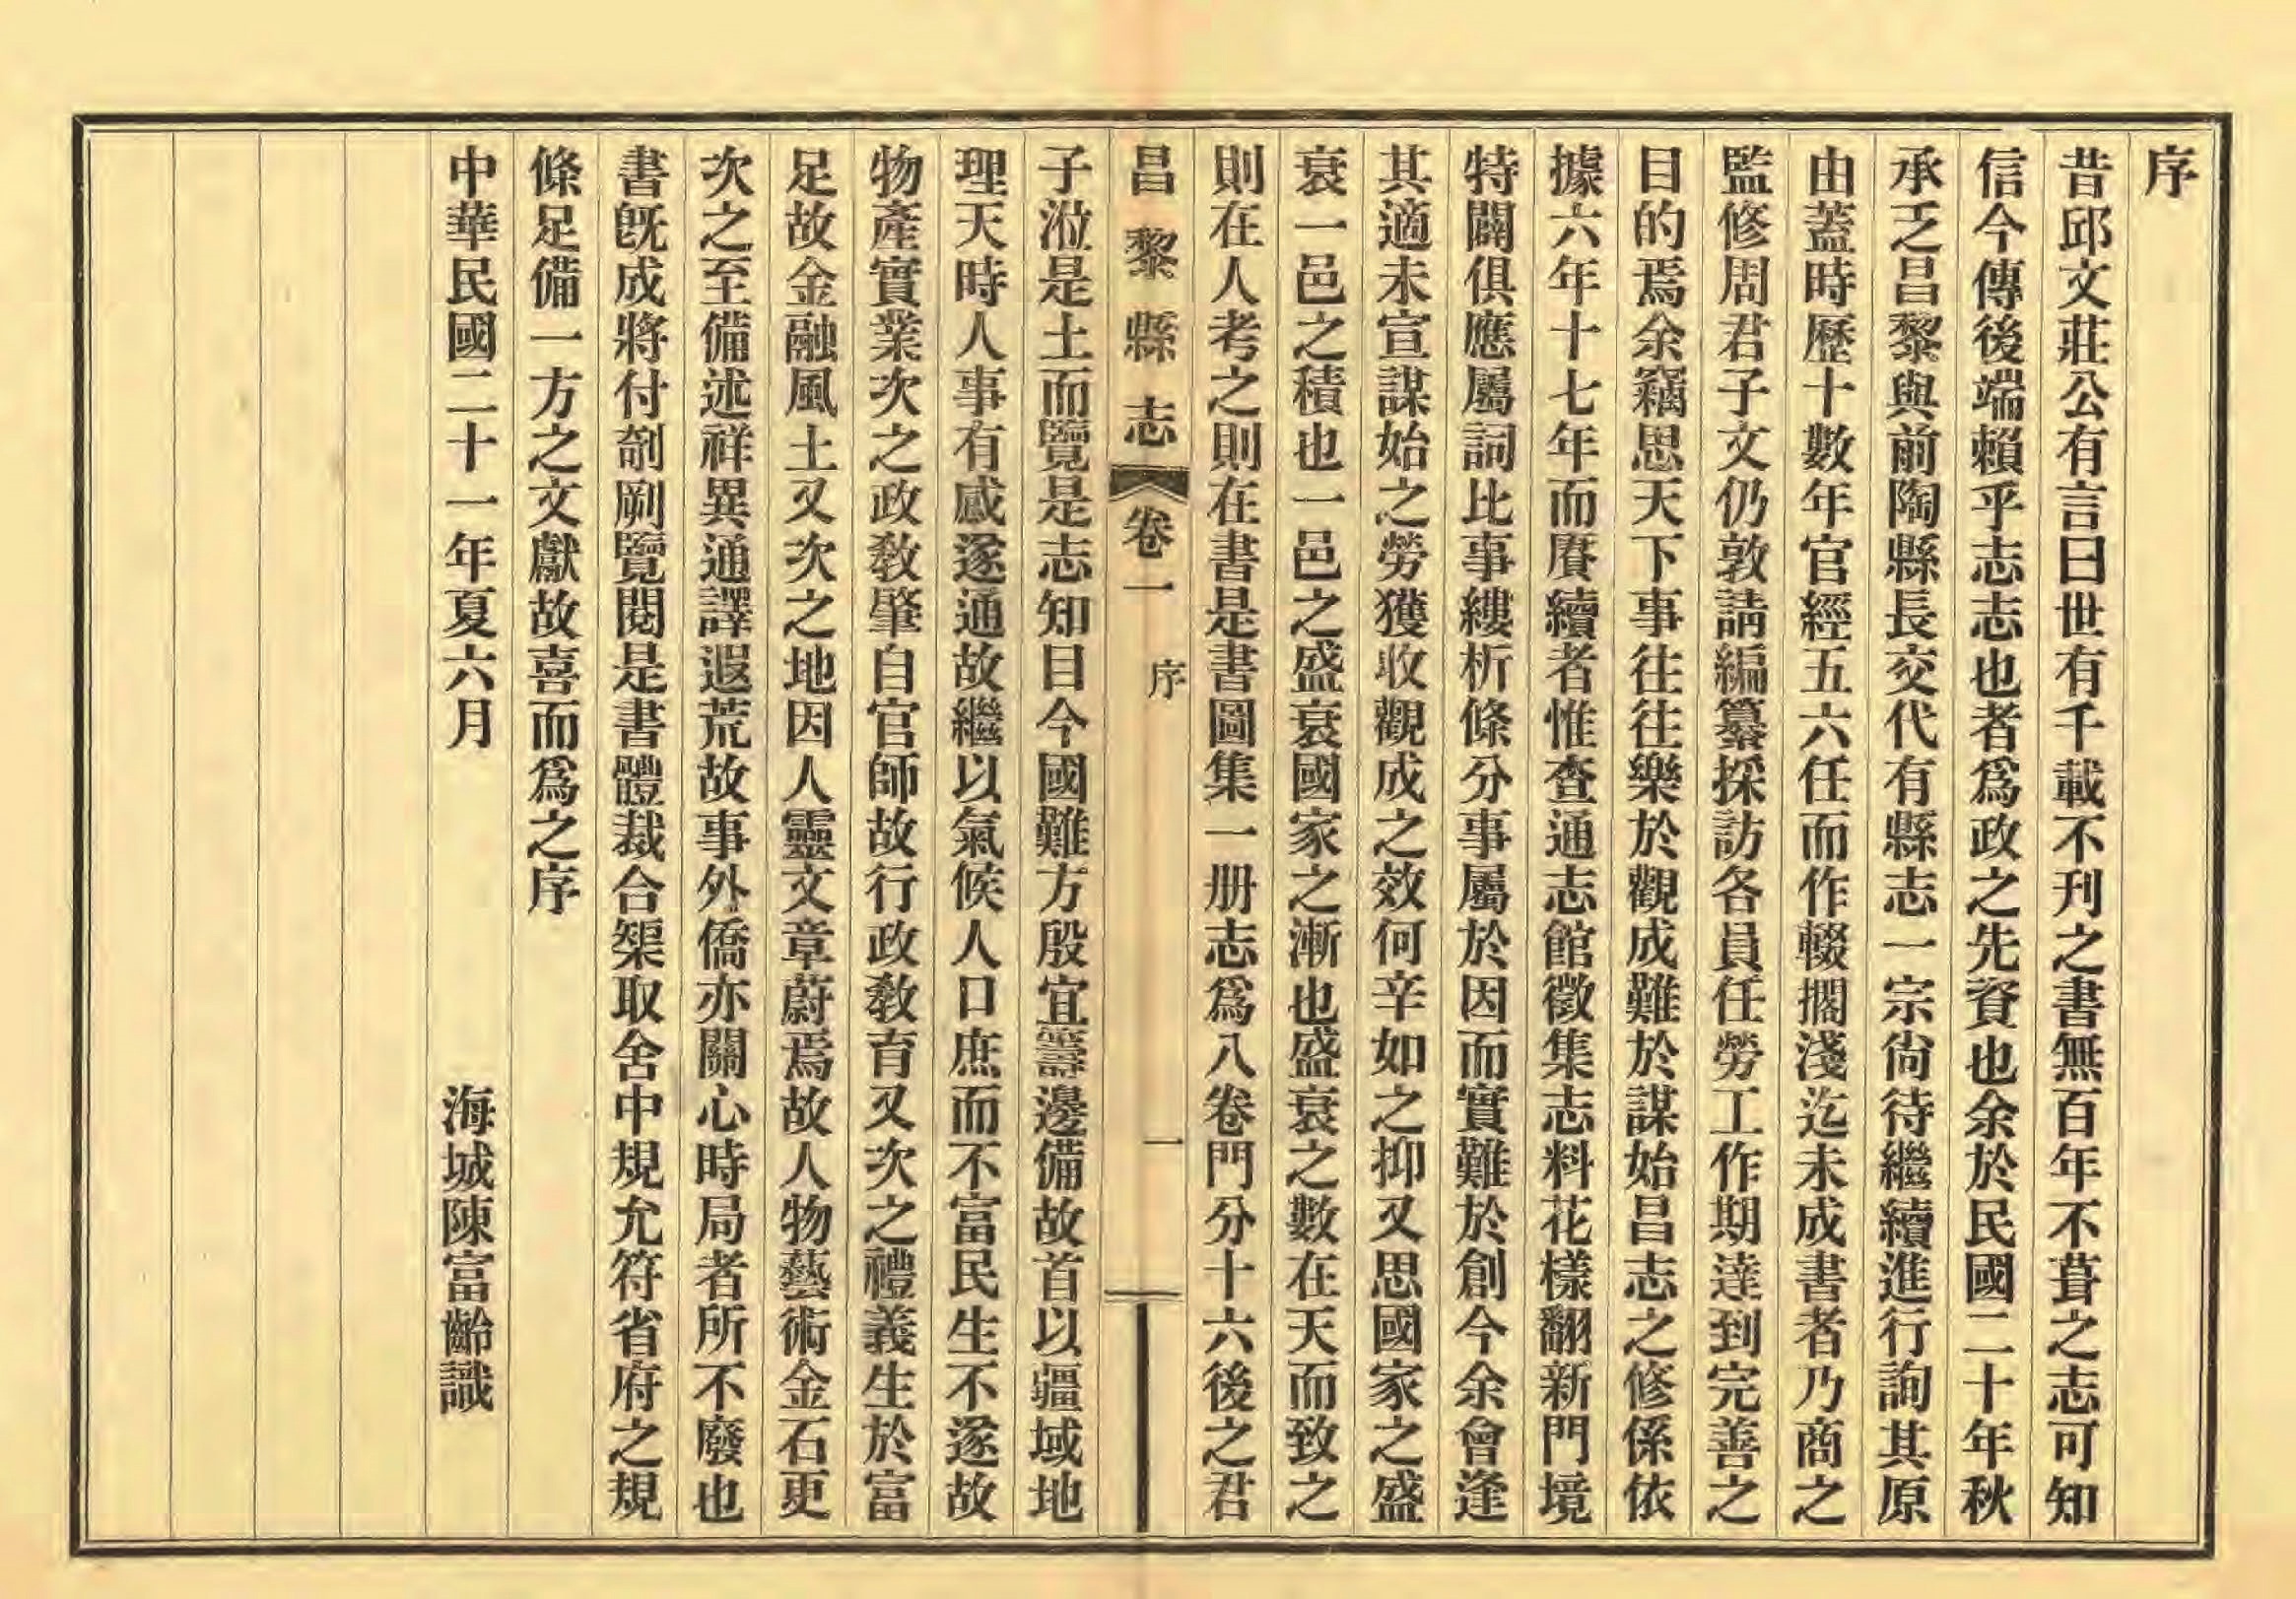 序
昔邱文莊公有言曰世有千載不刊之書無百年不葺之志可知
信今傳後端賴乎志志也者爲政之先資也余於民國二十年秋
承乏昌黎與前陶縣長交代有縣志一宗尙待繼續進行詢其原
由蓋時歷十數年官經五六任而作輟擱淺迄未成書者乃商之
監修周君子文仍敦請編纂採訪各員任勞工作期達到完善之
目的焉余竊思天下事往往樂於觀成難於謀始昌志之修係依
據六年十七年而賡續者惟查通志館徵集志料花樣翻新門境
特闢俱應屬詞比事縷析條分事屬於因而實難於創今余會逢
其適未宣謀始之勞獲收觀成之效何辛如之抑又思國家之盛
衰一邑之積也一邑之盛衰國家之漸也盛衰之數在天而致之
則在人考之則在書是書圖集一册志爲八卷門分十六後之君
昌黎縣志 卷一 序 一
子涖是土而覽是志知目今國難方殷宜籌邊備故首以疆域地
理天時人事有感遂通故繼以氣候人口庶而不富民生不遂故
物產實業次之政敎肇自官師故行政敎育又次之禮義生於富
足故金融風土又次之地因人靈文章蔚焉故人物藝術金石更
次之至備述祥異通譯遐荒故事外僑亦關心時局者所不廢也
書旣成將付剞劂覽閱是書體裁合榘取舍中規允符省府之規
條足備一方之文獻故喜而爲之序
中華民國二十一年夏六月 海城陳富齡識